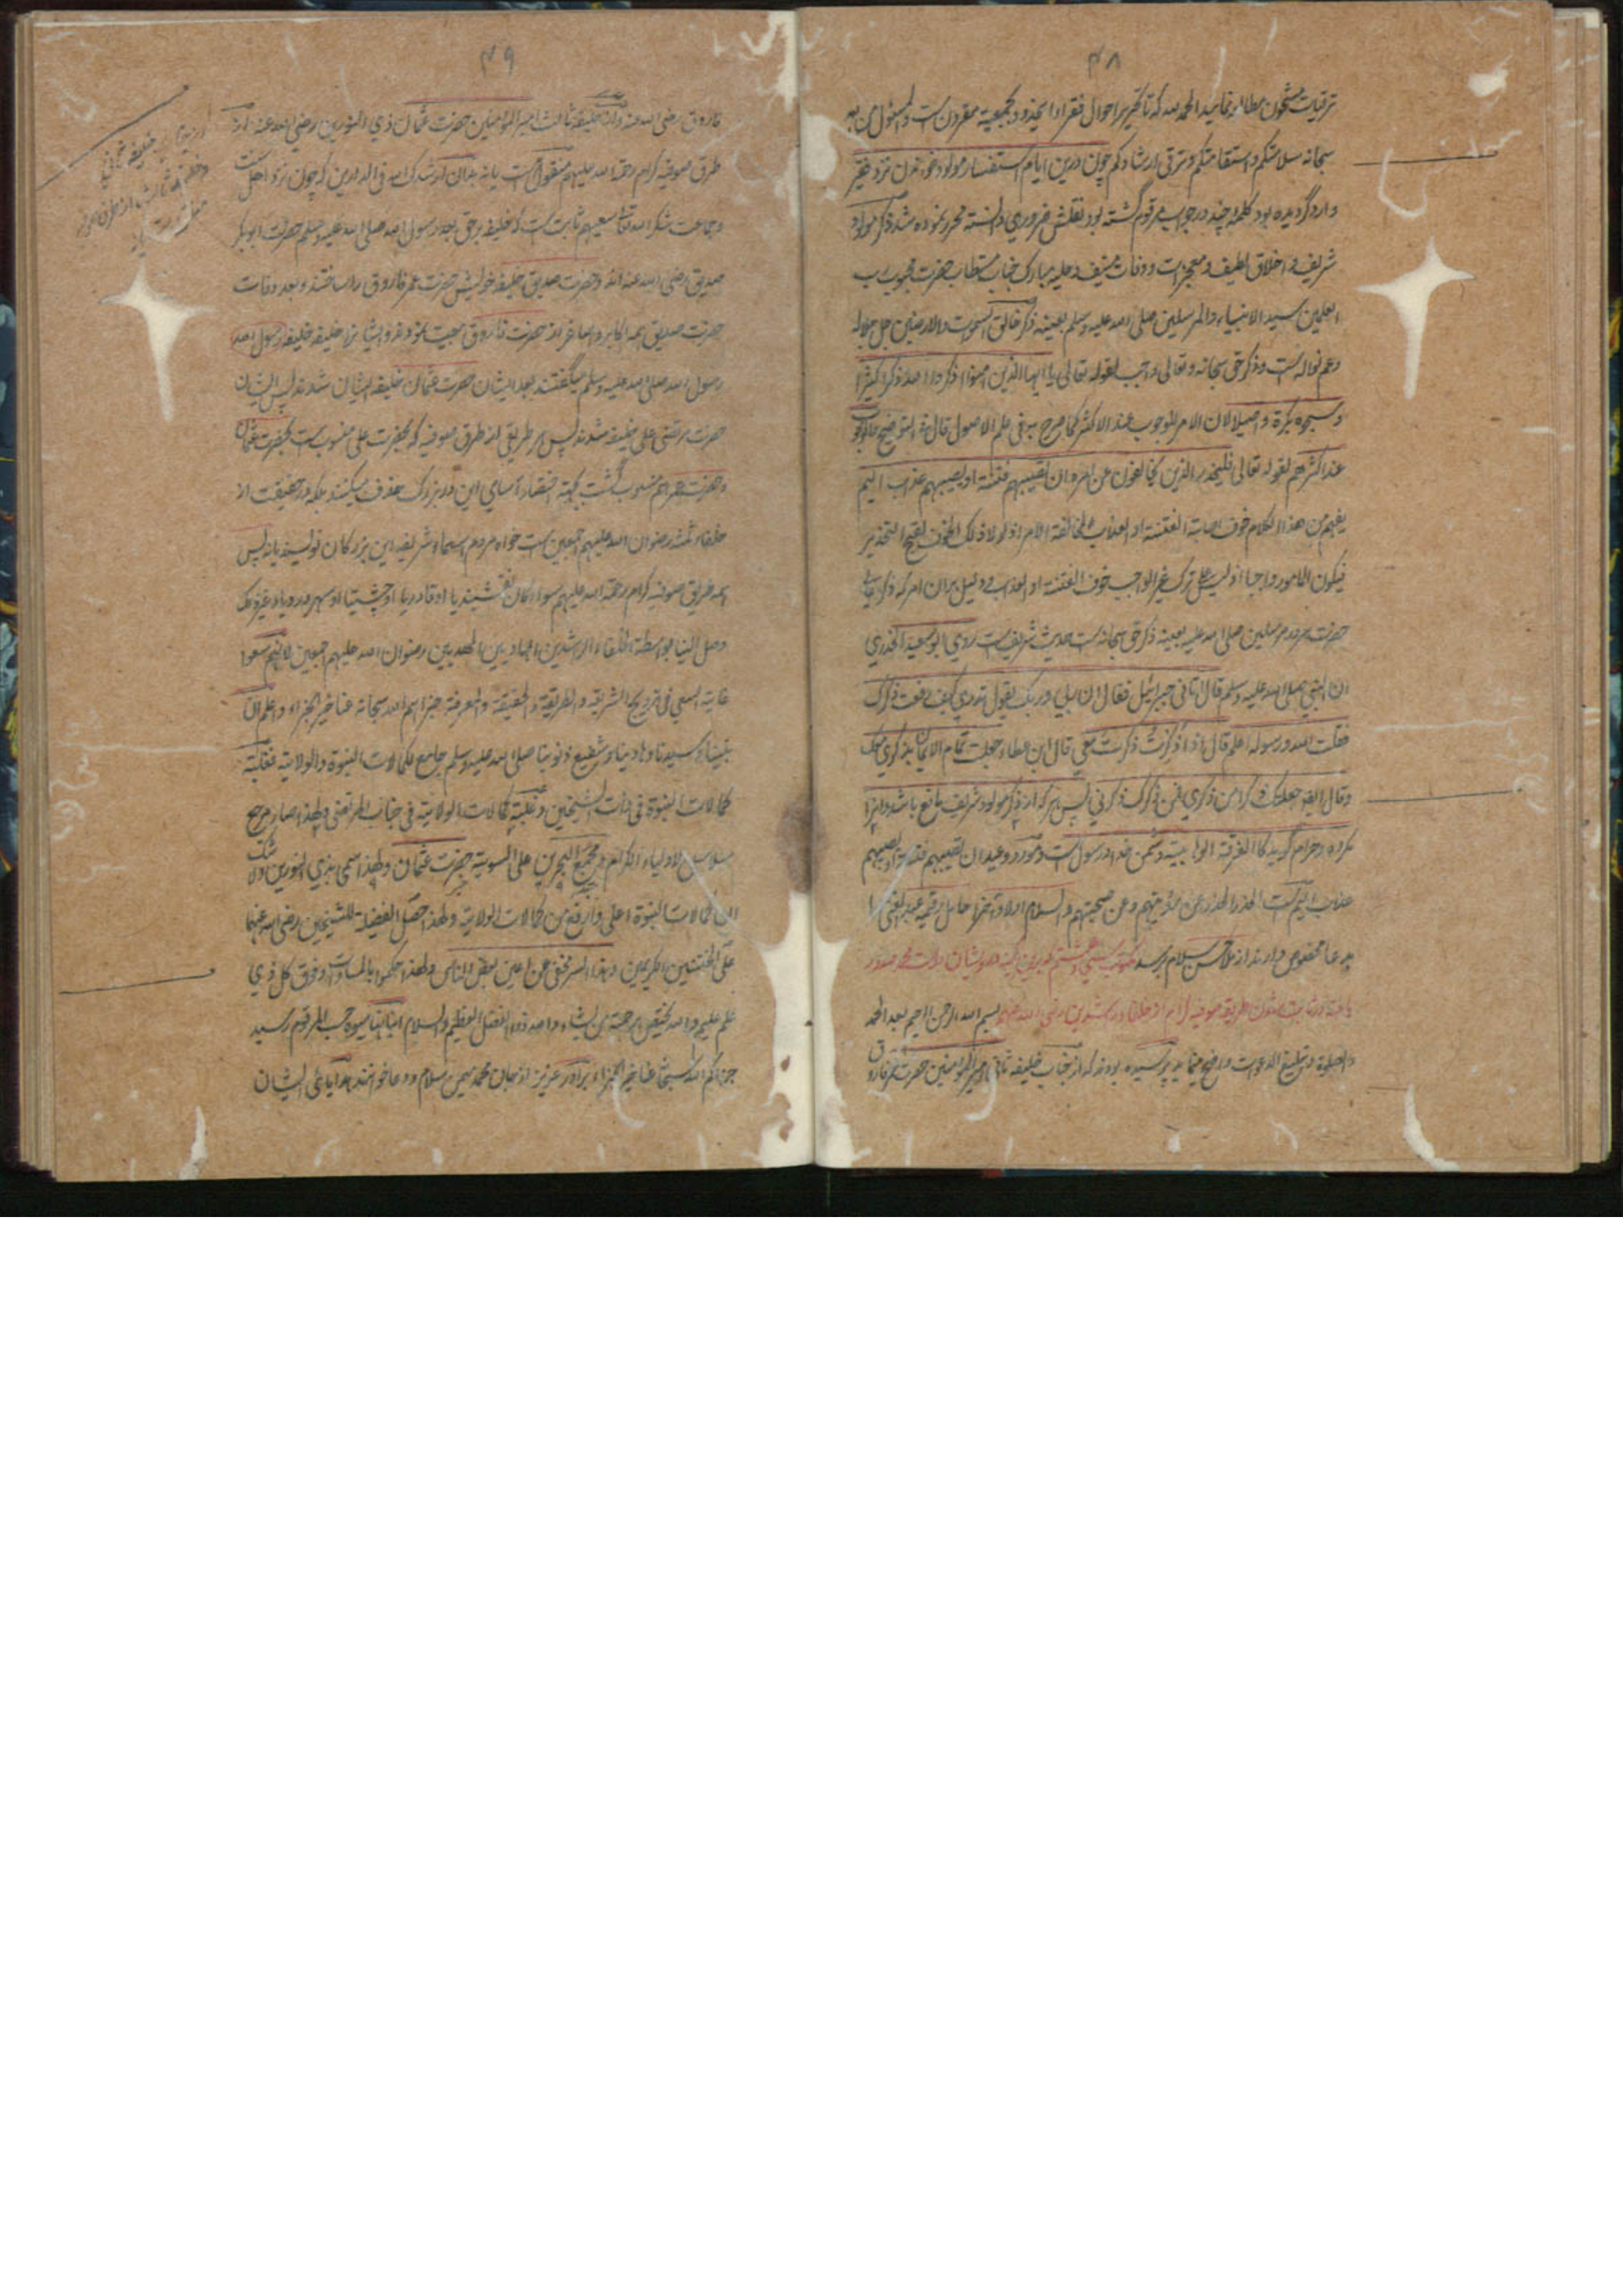 ۴۸
ترقیات مشحون مطالعه نمایند الحمد لله که تا تحریر احوال فقراء اینحدود بجمعیة مقرون است والمسئول من الله
سبحانه سلامتکم و استقامتکم و ترقی ارشادکم چون درین ایام استفسار مولود خواندن نزد فقیر
وارد گردیده بود کلمه چند در جواب مرقوم گشته بود نقلش ضروری دانسته محرر نموده شد ذکر مولود
شریف و اخلاق لطیف و معجزات و وفات منیف و حلیه مبارک جناب مستطاب حضرت محبوب رب
العلمین سید الانبیاء والمرسلین صلی الله علیه وسلم بعینه ذکر خالق السموات والارضین جل جلاله
و عم نواله است و ذکر حق سبحانه و تعالی واجب لقوله تعالی یا ایها الذین امنوا اذکروا الله ذکرا کثیرا
وسبحوه بکرة واصیلا لان الامر للوجوب عند الاکثر کما صرح به فی علم الاصول قال فی التوضیح
عند اکثرهم لقوله تعالی فلیحذر الذین یخالفون عن امره ان تصیبهم فتنة او یصیبهم عذاب الیم
یفهم من هذا الکلام خوف اصابة الفتنة او العذاب بمخالفة الامر اذ لولا ذلک الخوف لقبح التحذیر
فیکون المامور واجبا اذ لیس علی ترک غیر الواجب خوف الفتنة او العذاب و دلیل بران امر که ذکر
حضرت سرور مرسلین صلی الله علیه بعینه ذکر حق سبحانه است حدیث شریف است روی ابو سعید الخدری
ان النبی صلی الله علیه وسلم قال اتانی جبرائیل فقال ان ربی وربک یقول تدری کیف رفعت ذکرک
فقلت الله ورسوله اعلم قال اذا ذکرت ذکرت معی قال ابن عطاء جعلت تمام الایمان بذکری معک
وقال ایضا جعلتک ذکرا من ذکری فمن ذکرک ذکرنی پس هر که از ذکر مولود شریف مانع باشد و انرا
مکروه و حرام گوید کالفرقة الوهابیة دشمن خدا و رسول است و مورد وعید ان تصیبهم فتنة او یصیبهم
عذاب الیم است الحذر الحذر عن رؤیتهم وعن صحبتهم والسلام اولا و آخرا حامل رقیمه عبد الغنی را
بدعا مخصوص دارند از ملا حسن سلام برسد مکتوب سی و هشتم
بسم الله الرحمن الرحیم بعد الحمد
والصلوة و تبلیغ الدعوات واضح مینماید پرسیده بودند که از جناب خلیفه ثانی امیر المؤمنین حضرت عمر فاروق
۴۹
فاروق رضی الله عنه و از خلیفه ثالث امیر المؤمنین حضرت عثمان ذی النورین رضی الله عنه از
طرق صوفیه کرام رحمة الله علیهم منقول است یا نه بدان ارشدک الله فی الدارین که چون نزد اهل سنت
وجماعت شکر الله تعالی سعیهم ثابت است که خلیفه بر حق بعد رسول الله صلی الله علیه وسلم حضرت ابوبکر
صدیق رضی الله عنه اند و حضرت صدیق خلیفه خویش حضرت عمر فاروق را ساختند و بعد وفات
حضرت صدیق همه اکابر و اصاغر از حضرت فاروق بیعت نمودند و ایشانرا خلیفه خلیفه رسول الله
رسول الله صلی الله علیه وسلم میگفتند بعد ایشان حضرت عثمان خلیفه ایشان شدند پس ایشان
حضرت مرتضی علی خلیفه شدند پس هر طریقی از طرق صوفیه که بحضرت علی منسوب است بحضرت عثمان
و حضرت عمر هم منسوب گشت بجهة اختصار اسامی این دو بزرگ حذف میکنند بلکه در حقیقت از
خلفاء ثلثه رضوان الله علیهم اجمعین است خواه مردم اسماء شریفه این بزرگان نویسند یا نه پس
همه طریق صوفیه کرام رحمة الله علیهم سواء کان نقشبندیا او قادریا او چشتیا او سهروردیا و غیر ذلک
وصل الینا بواسطة الخلفاء الراشدین الهادیین المهدیین رضوان الله علیهم اجمعین لانهم سعوا
غایة السعی فی ترویج الشریعة والطریقة والحقیقة والمعرفة جزاهم الله سبحانه عنا خیر الجزاء واعلم ان
نبینا وسیدنا وهادینا وشفیع ذنوبنا صلی الله علیه وسلم جامع لکمالات النبوة والولایة فغلبة
کمالات النبوة فی ذات الشیخین وغلبة کمالات الولایة فی جناب المرتضی ولهذا صار مرجع
سلاسل اولیاء الکرام ومجمع البحرین علی السویة حضرت عثمان ولهذا سمی بذی النورین ولا شک
ان کمالات النبوة اعلی وارفع من کمالات الولایة ولهذا حصل الفضیلة للشیخین رضی الله عنهما
علی الختنین الکریمین وهذا السر مخفی عن اعین بعض الناس ولهذا حکموا بالمساوات وفوق کل ذی
علم علیم والله یختص برحمته من یشاء والله ذو الفضل العظیم والسلام حسب المرقوم رسید
جزاکم الله سبحانه عنا خیر الجزاء برادر عزیز از جان محمد یمین سلام و دعا خوانند ایشان